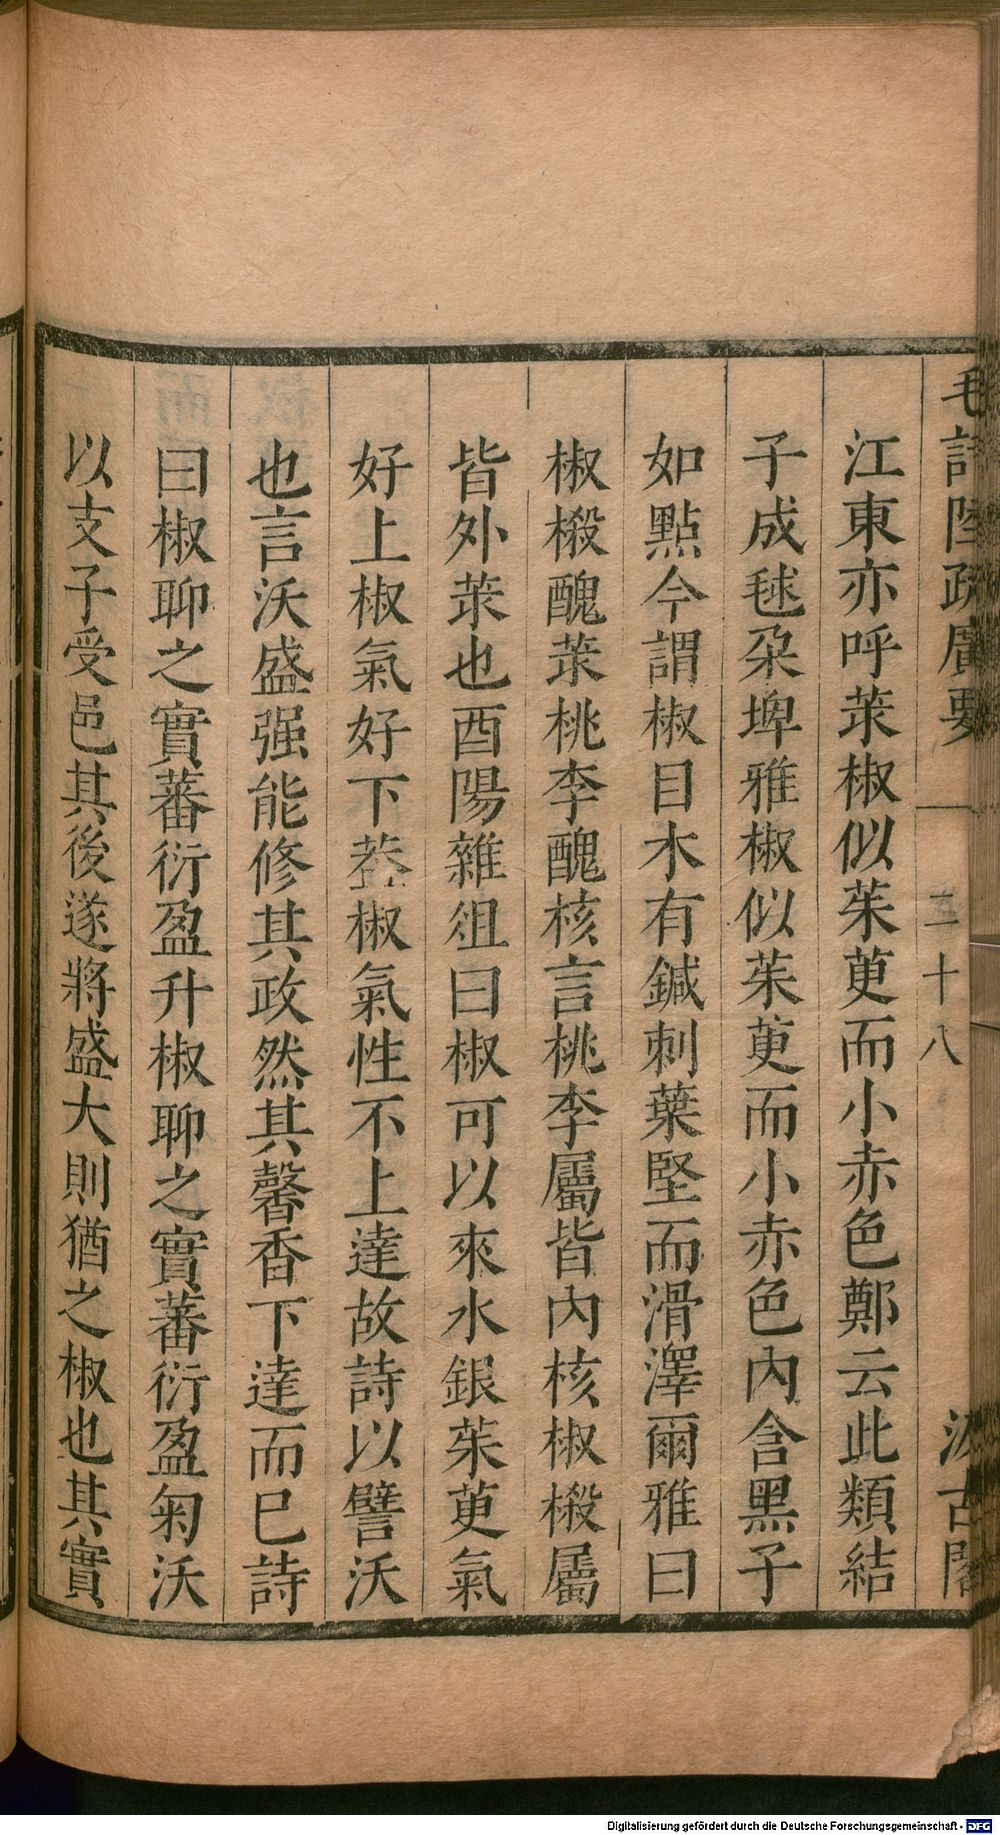 毛詩陸疏廣要 二十八 汲古閣
江東亦呼莍椒似茱萸而小赤色鄭云此類結
子成毬朶埤雅椒似茱萸而小赤色內含黑子
如點今謂椒目木有鍼刺葉堅而滑澤爾雅曰
椒樧醜莍桃李醜核言桃李屬皆內核椒樧屬
皆外莍也酉陽雜俎曰椒可以來水銀茱萸氣
好上椒氣好下葢椒氣性不上達故詩以譬沃
也言沃盛强能修其政然其馨香下達而已詩
曰椒聊之實蕃衍盈升椒聊之實蕃衍盈匊沃
以支子受邑其後遂將盛大則猶之椒也其實
Digitalisierung gefördert durch die Deutsche Forschungsgemeinschaft - DFG